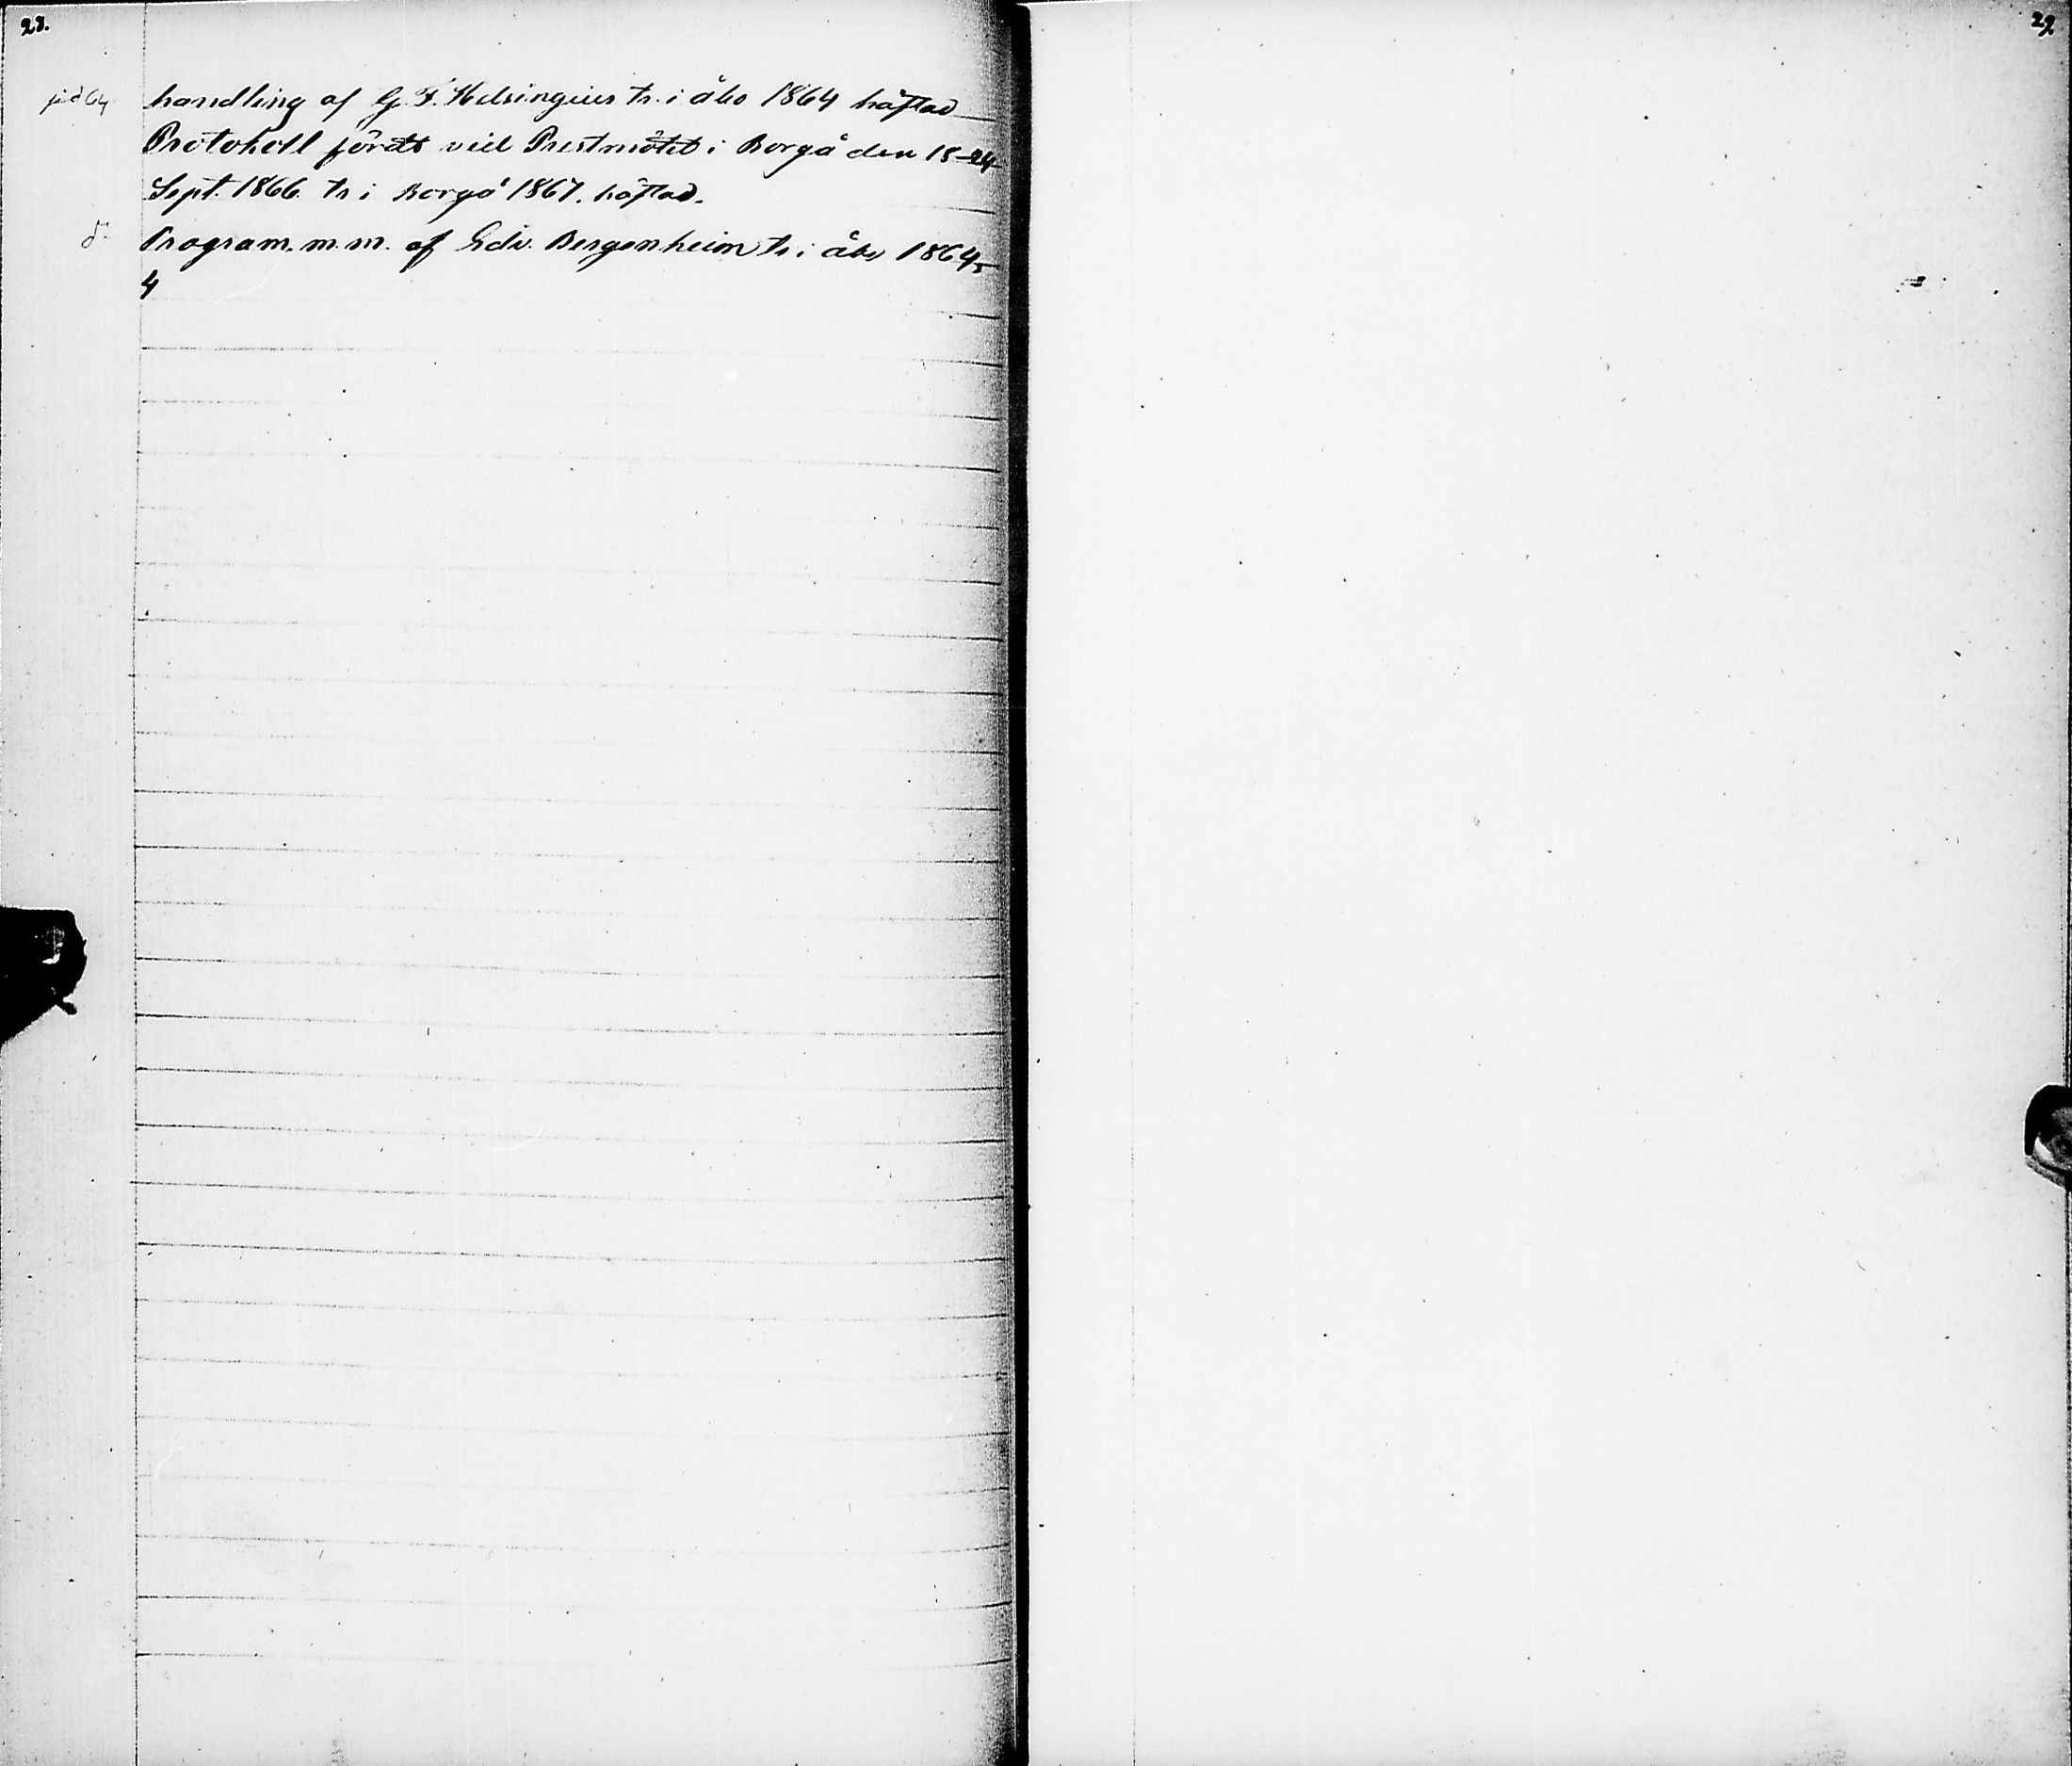 28.
29
handling af G. F. Helsingius tr. i Åbo 1864 häftad
Protokoll fördt vid Prestmötet i Borgå den 18-24
Sept. 1866. tr i Borgå 1867. häftad.
Program. m. m. af Edv. Bergenheim tr. i Åbo 1864
4